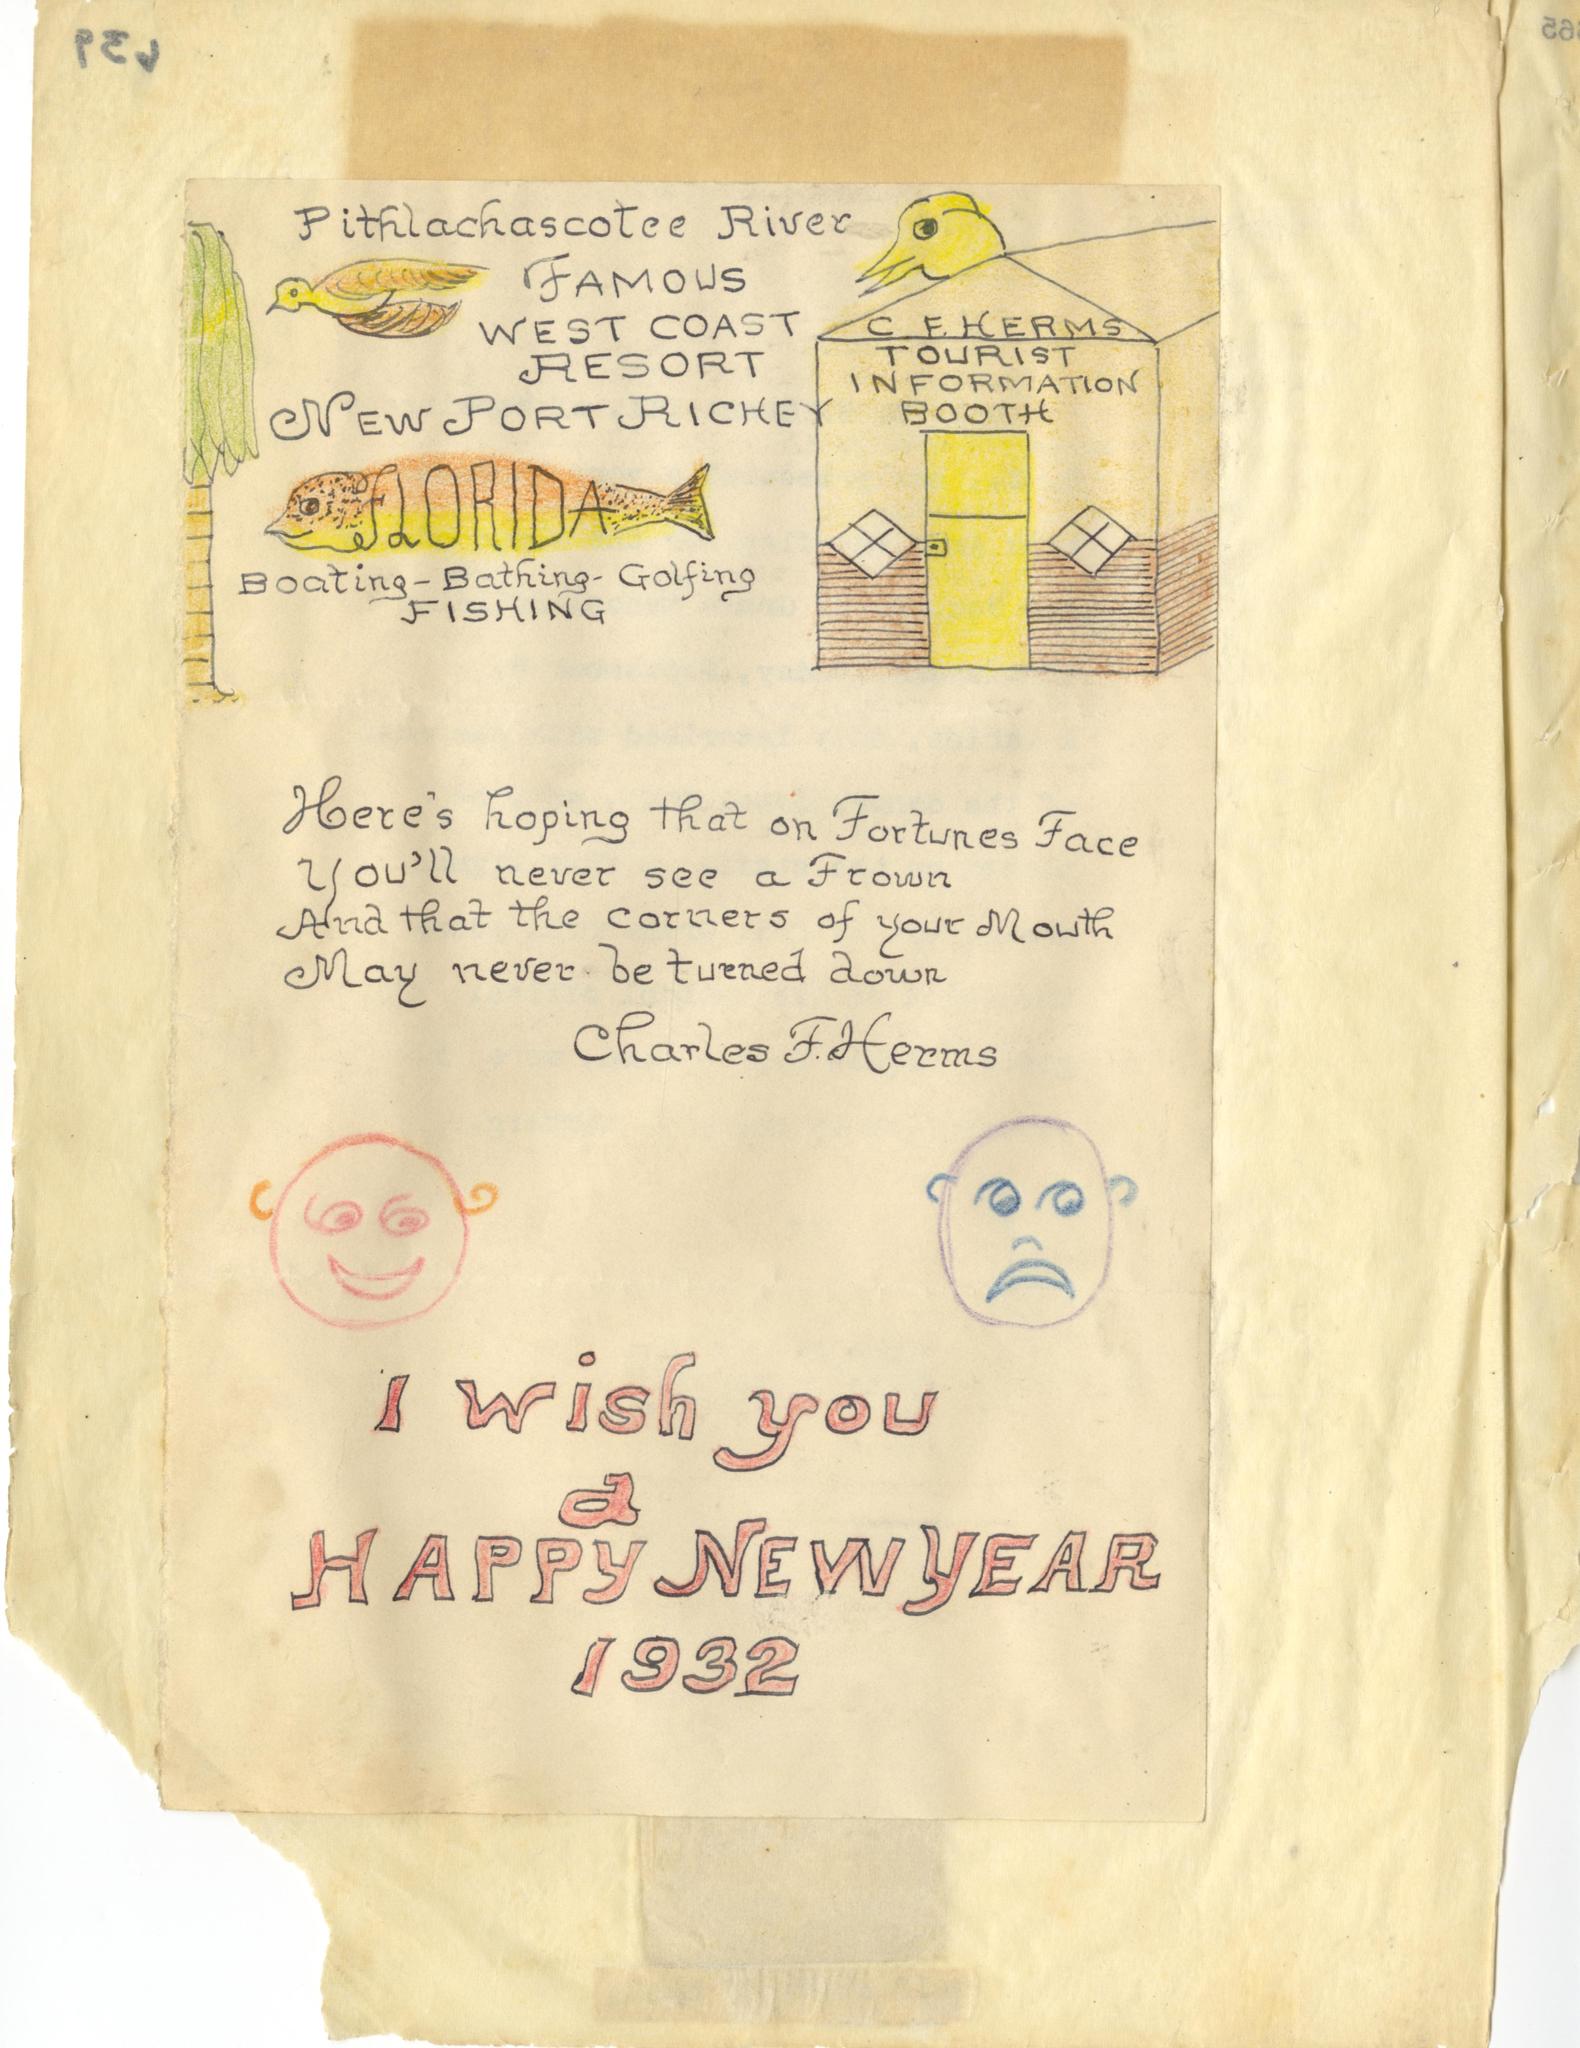 Pithlachascotee River
FAMOUS
WEST COAST
RESORT
NEW PORT RICHEY
FLORIDA
Boating - Bathing - Golfing
FISHING
C F. HERMS
TOURIST
INFORMATION
BOOTH
Here's hoping that on Fortunes Face
You'll never see a Frown
And that the corners of your Mouth
May never be turned down
Charles F. Herms
I wish you
a
HAPPY NEW YEAR
1932